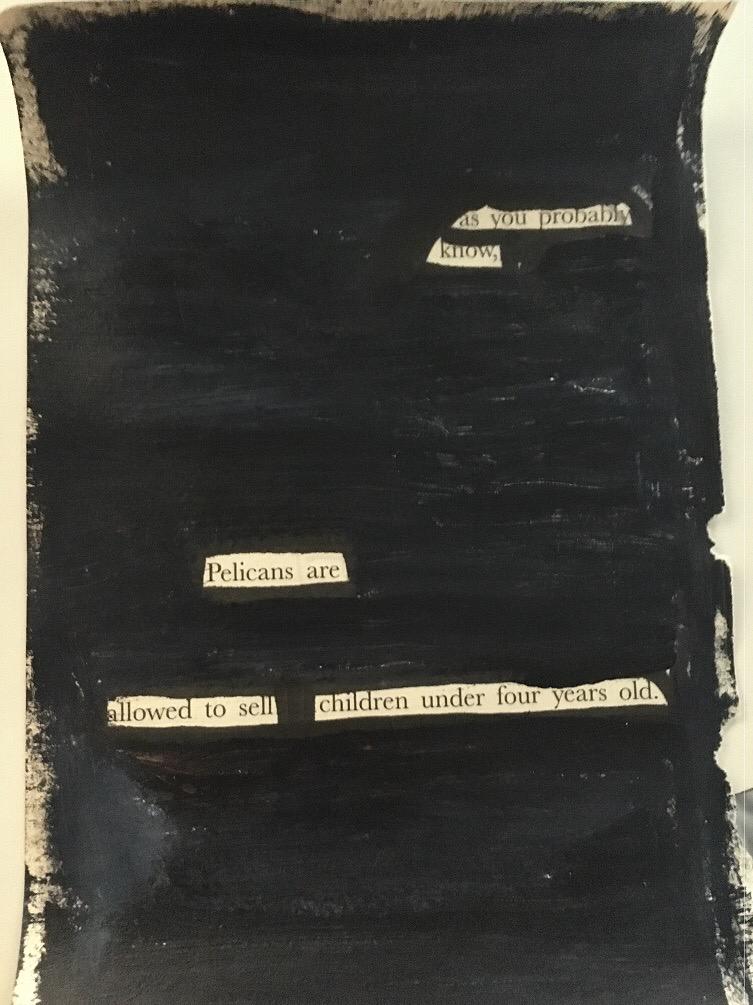 as you probably
know,
Pelicans are
allowed to sell children under four years old.